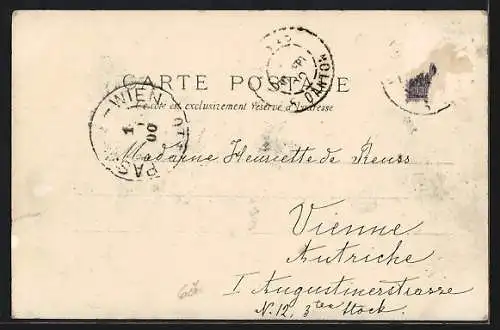 CARTE POSTALE
Ce côté est exclusivement réservé à l'adresse
WIEN
1
00
Madame Henriette de Reuss
Vienne
Autriche
I Augustinerstrasse
N. 12, 3ten Stock.
63